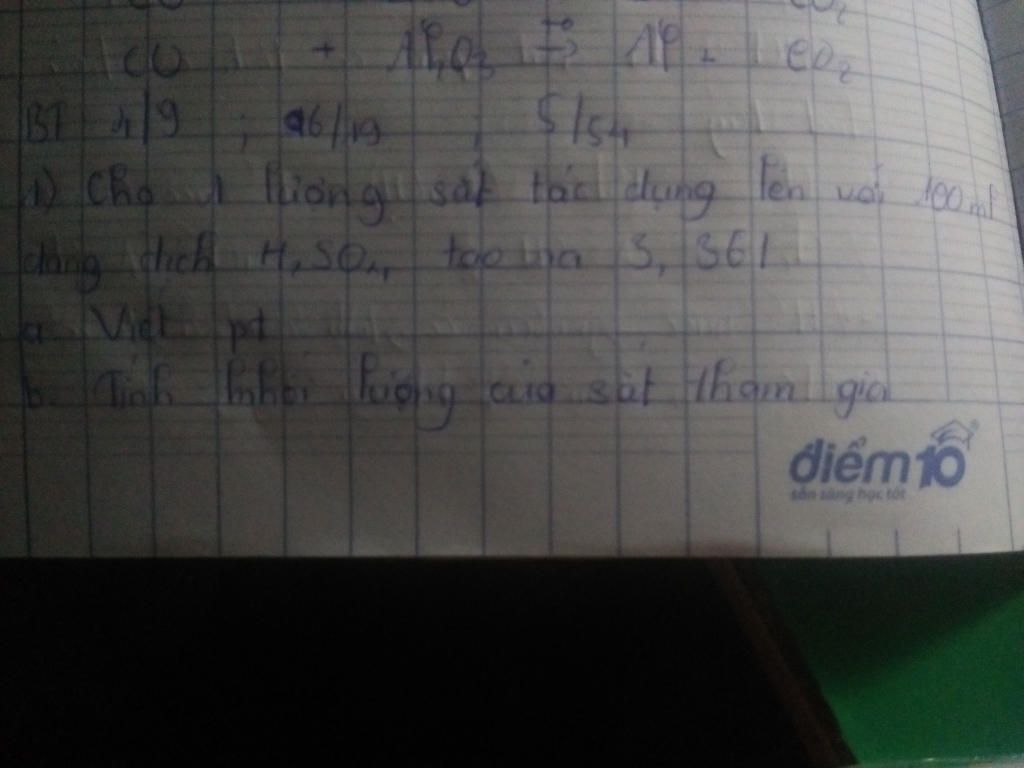 CO₂
CO + Al₂O₃ t° → Al + CO₂
BT 4/9 ; 6/19 ; 5/54
1) Cho 1 lượng sắt tác dụng lên với 100ml
dung dịch H₂SO₄, tạo ra 3,36l
a. Viết pt
b. Tính khối lượng của sắt tham gia
điểm10
sẵn sàng học tốt